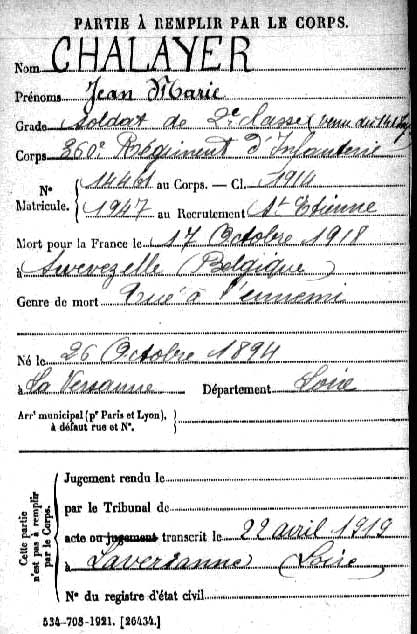 PARTIE À REMPLIR PAR LE CORPS.
Nom CHALAYER
Prénoms Jean Marie
Grade Soldat de 2e classe (venu du
Corps 360e Régiment d'Infanterie
N° Matricule. 14461 au Corps. — Cl. 1914
1947 au Recrutement St Etienne
Mort pour la France le 17 Octobre 1918
à (Belgique)
Genre de mort Tué à l'ennemi
Né le 26 Octobre 1894
à La Versanne Département Loire
Arrt municipal (pr Paris et Lyon), à défaut rue et N°.
Cette partie n'est pas à remplir par le Corps.
Jugement rendu le
par le Tribunal de
acte ou jugement transcrit le 22 avril 1919
à Laversanne (Loire)
N° du registre d'état civil
534-708-1921. [26434.]